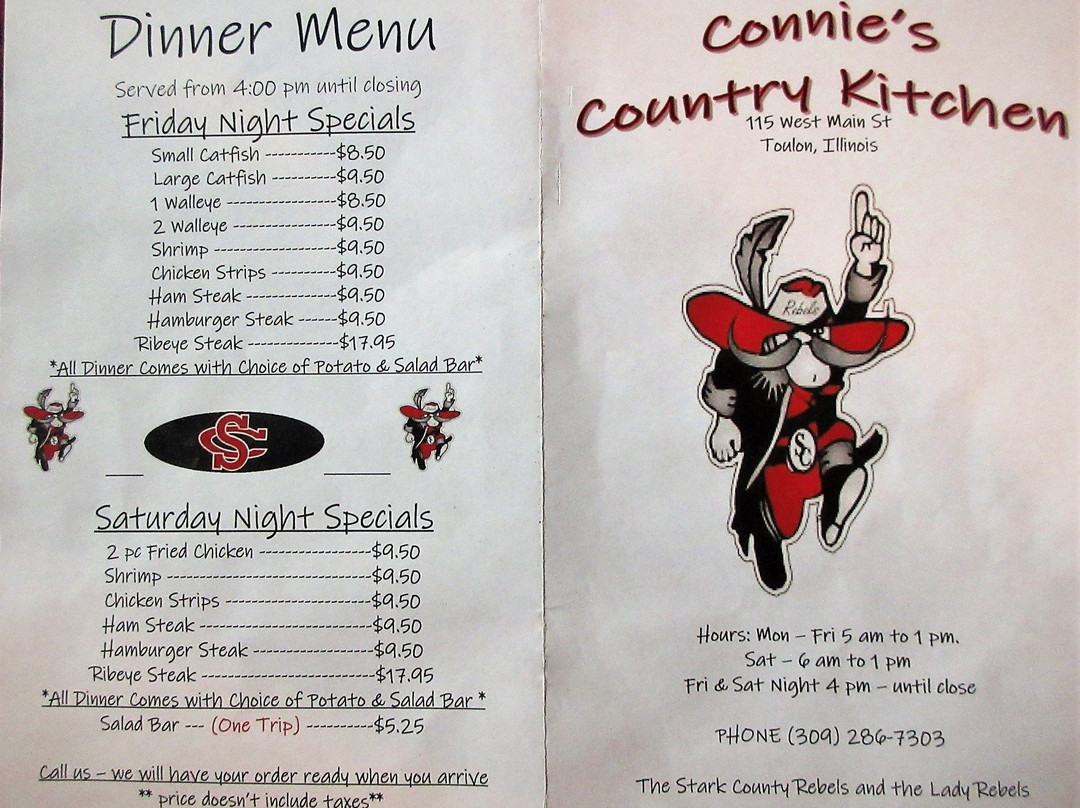 Dinner Menu
Served from 4:00 pm until closing
Friday Night Specials
Small Catfish -----------$8.50
Large Catfish ----------$9.50
1 Walleye -----------------$8.50
2 Walleye ----------------$9.50
Shrimp -------------------$9.50
Chicken Strips ----------$9.50
Ham Steak --------------$9.50
Hamburger Steak ------$9.50
Ribeye Steak --------------$17.95
*All Dinner Comes with Choice of Potato & Salad Bar*
SC
Saturday Night Specials
2 pc Fried Chicken -----------------$9.50
Shrimp -------------------------------$9.50
Chicken Strips ----------------------$9.50
Ham Steak ---------------------------$9.50
Hamburger Steak -------------------$9.50
Ribeye Steak --------------------------$17.95
*All Dinner Comes with Choice of Potato & Salad Bar *
Salad Bar --- (One Trip) ----------$5.25
Call us – we will have your order ready when you arrive
** price doesn't include taxes**
Connie's
Country Kitchen
115 West Main St
Toulon, Illinois
Rebels
SC
Hours: Mon – Fri 5 am to 1 pm.
Sat – 6 am to 1 pm
Fri & Sat Night 4 pm – until close
PHONE (309) 286-7303
The Stark County Rebels and the Lady Rebels